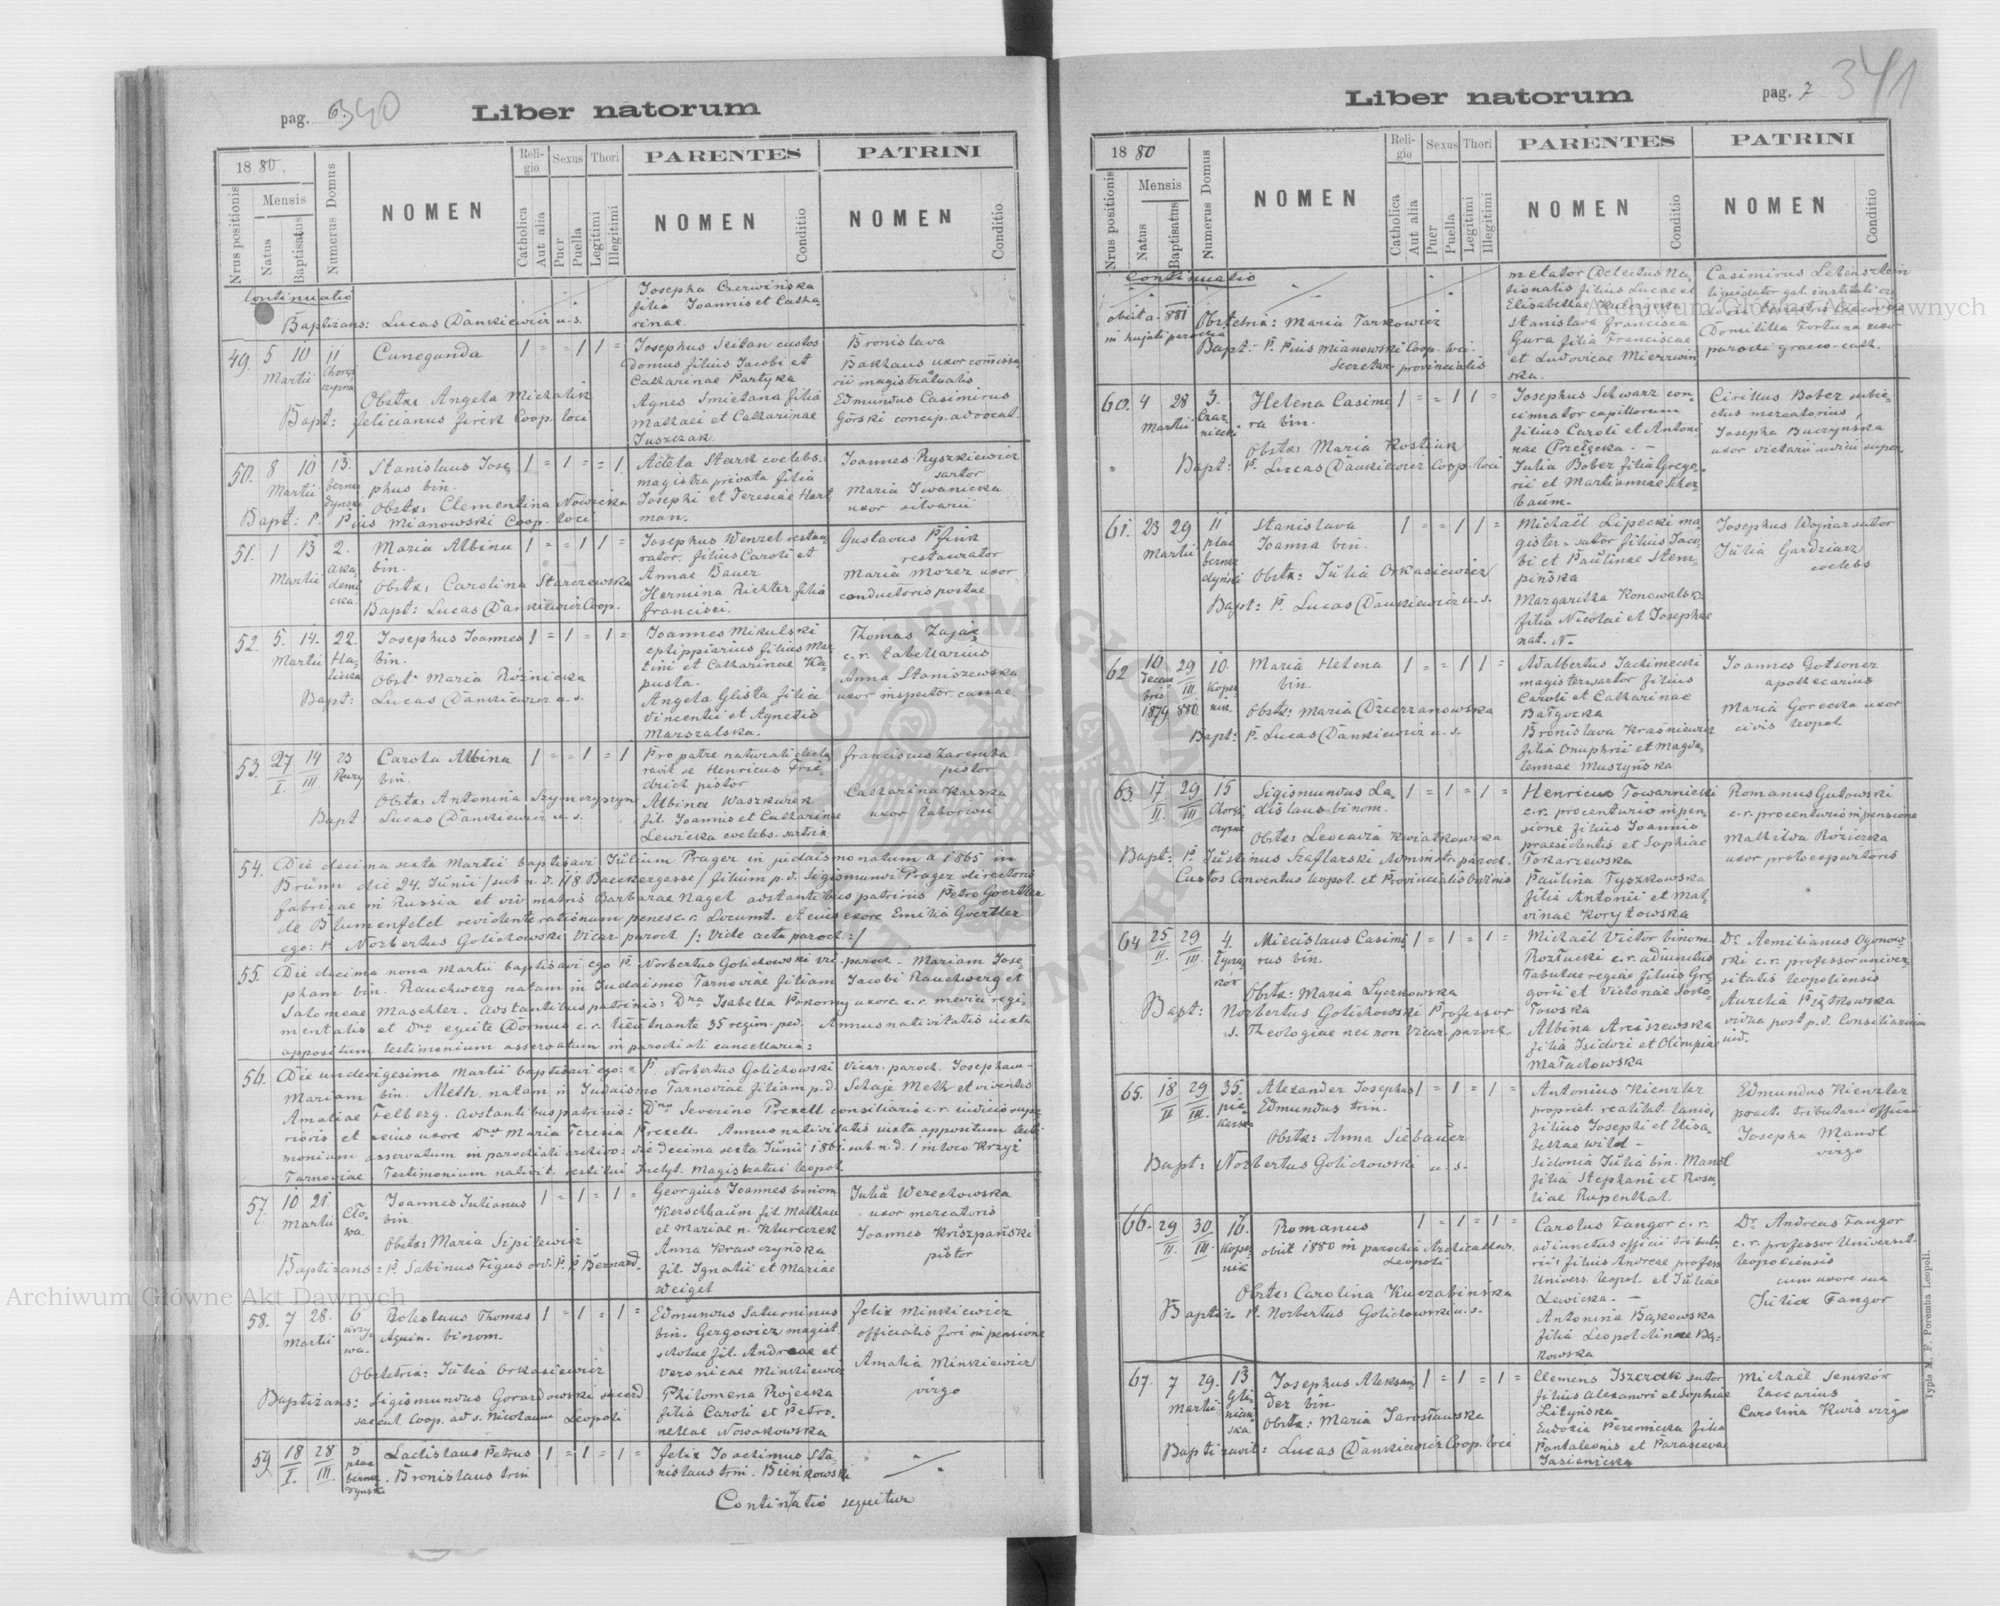 pag. 6. 340
Liber natorum
18 80.
Nrus positionis
Mensis
Natus
Baptisatus
Numerus Domus
NOMEN
Religio
Catholica
Aut alia
Sexus
Puer
Puella
Thori
Legitimi
Illegitimi
PARENTES
NOMEN
Conditio
PATRINI
NOMEN
Conditio
Continuatio
Baptizans: Lucas Dankiewicz u.s.
Josepha Czerwińska
filia Joannis et Catha
rinae.
49. 5 10 11 Cunegunda
Martii
Obstx: Angela Michalik
Bapt: Felicianus Firek Coop. loci
Josephus Seitan custos
domus filius Jacobi et
Catharinae Partyka
Agnes Smietana filia
Mathaei et Catharinae
Juszczak.
Bronislava
Bakhaus uxor commissa
rii magistratualis
Edmundus Casimirus
Górski concip. advocat.
50. 8 10 13. Stanislaus Jose
Martii phus bin.
Obstx: Clementina Nowicka
Bapt: P. Pius Mianowski Coop. loci
Adela Stark coelebs.
magistra privata filia
Josephi et Teresiae Hart
man.
Joannes Ryszkiewicz
sartor
Maria Iwanicka
uxor silvarii
51. 1 13 2. Maria Albina
Martii bin.
Obstx: Carolina Starczewska
Bapt: Lucas Dankiewicz Coop.
Josephus Wenzel restau
rator. filius Caroli et
Annae Bauer
Hermina Richter filia
Francisci.
Gustavus Pfink
restaurator
Maria Mozer uxor
conductoris postae
52. 5. 14. 22 Josephus Joannes
Martii Halicka bin.
Obst: Maria Róznicka
Bapt: Lucas Dankiewicz u.s.
Joannes Mikulski
ephippiarius filius Mar
tini et Catharinae Ka
pusta.
Angela Glista filia
Vincentii et Agnetis
Marszalska.
Thomas Zając
c.r. tabellarius
Anna Staniszewska
uxor inspector. cassae.
53. 27/I. 14/III 23 Carola Albina
Rury bin.
Obstx: Antonina Szymczyszyn
Bapt: Lucas Dankiewicz u.s.
Pro patre naturali decla
ravit se Henricus Frie
drich pistor
Albina Waszkurek
fil. Joannis et Catharinae
Lewicka coelebs. sartrix
Franciscus Zaremba
pistor
Catharina Karska
uxor laborisii
54. Die decima sexta Martii baptisavi Julium Prager in judaismo natum a 1865 in
Brünn die 24. Junii /sub n.d. 118 Baeckergasse/ filium p.d. Sigismundi Prager directoris
fabricae in Russia et viv matris Barbarae Nagel adstantibus patrinis Petro Goertler
de Blumenfeld revidente rationum penes c.r. Locumt. et eius uxore Emilia Goertler
ego: P. Norbertus Golichowski Vicar. paroch. /: Vide acta paroch: /
55. Die decima nona Martii baptisavi ego P. Norbertus Golichowski vic. paroch. Mariam Jose
pham bin. Rauchwerg natam in Judaismo Tarnoviae filiam Jacobi Rauchwerg et
Salomeae Maschler. Adstantibus patrinis: Dna Isabella Pokorny uxore c.r. medici regi
mentalis et Dno equite Dormus c.r. lieutnante 35 regim. ped. Annus nativitatis iuxta
appositum testimonium asservatum in parochiali cancellaria:
56. Die undevigesima Martii baptisavi ego: P. Norbertus Golichowski Vicar. paroch. Josepham
Mariam bin. Meth. natam in Judaismo Tarnoviae filiam p.d. Schaje Meth et viventis
Amaliae Felberg. Adstantibus patrinis: Dno Severino Prexell consiliario c.r. iudicii supe
rioris et eius uxore Dna Maria Teresia Prexell. Annus nativitatis iuxta appositum testi
monium asservatum in parochiali archivo: die decima sexta Junii 186. sub n.d. 1 in loco Krzyż
Tarnoviae. Testimonium nativit. restitui Inclyt. Magistratui Leopol.
57. 10 21. Joannes Julianus
Martii Cłowa. bin.
Obstx: Maria Sipilewicz
Baptizans: P. Sabinus Figus ord. P.P. Bernard.
Georgius Joannes binom
Kerschbaum fil. Mathaei
et Mariae n. Kturerek
Anna Krawczyńska
fil. Ignatii et Mariae
Weigel
Julia Werechowska
uxor mercatoris
Joannes Kriszpański
pistor
58. 7 28. 6 Boleslaus Thomas
Martii Krzywa. Aquin. binom.
Obstetrix: Julia Orkasiewicz
Baptizans: Sigismundus Gorazdowski sacerd.
saecul. Coop. ad s. Nicolaum Leopoli
Edmundus Saturninus
bin. Gergowicz magist.
scholae fil. Andreae et
Veronicae Minkiewicz
Philomena Rojecka
filia Caroli et Petro
nellae Nowakowska
Felix Minkiewicz
officialis fori in pensione
Amalia Minkiewicz
virgo
59. 18/I. 28/III. 5 Ladislaus Petrus
Bronislaus trin
Felix Joachimus Sta
nislaus trin. Bieńkowski
Continuatio sequitur
pag. 7 341
Liber natorum
18 80
Nrus positionis
Mensis
Natus
Baptisatus
Numerus Domus
NOMEN
Religio
Catholica
Aut alia
Sexus
Puer
Puella
Thori
Legitimi
Illegitimi
PARENTES
NOMEN
Conditio
PATRINI
NOMEN
Conditio
Continuatio
obiit a. 881
in hujati parochia
Obstetrix: Maria Tarkowicz
Bapt: P. Pius Mianowski Coop. loci
Secretar. provincialis
metator Delectus Na
tionalis filius Lucae et
Elisabethae Kulczycka
Stanislava Francisca
Gura filia Franciscae
et Ludovicae Mierzwin
ska.
Casimirus Lekenstein
liquidator gal. instituti cre
Domitilla Fortuna uxor
parochi graeco-cath.
60. 4 28 3. Helena Casimi
Martii Czarniecki ra bin.
Obstx: Maria Kostiuk
Bapt: P. Lucas Dankiewicz Coop. loci
Josephus Schwarz con
cinnator capillorum
filius Caroli et Antoni
nae Przełęcka. —
Julia Bober filia Grego
rii et Martiannae Schor
baum.
Cirillus Bober subie
ctus mercatorius,
Josepha Buczyńska
uxor victarii
61. 23 29 11 Stanislava
Martii plac bernardyński Joanna bin.
Obstx: Julia Orkasiewicz
Bapt: P. Lucas Dankiewicz u.s.
Michaël Lipecki ma
gister-sutor filius Jaco
bi et Paulinae Stem
pińska
Margaritha Konowalska
filia Nicolai et Josephae
nat. N.
Josephus Wojnar sutor
Julia Gardziarz
coelebs
62 10 Decembris 1879 29/III. 880 10. Kopernik. Maria Helena
bin.
Obstx: Maria Dzierzanowska
Bapt: P. Lucas Dankiewicz u.s.
Adalbertus Jachimecki
magister sartor filius
Caroli et Catharinae
Bałgocka
Bronislava Kraśniewicz
filia Onuphrii et Magda
lennae Muszyńska
Joannes Gotsoner
apothecarius
Maria Gorecka uxor
civis leopol
63. 17/II. 29/III. 15 Sigismundus La
dislaus binom.
Obstx: Leocadia Kwiatkowska
Bapt: P. Justinus Szaflarski Administr. paroch.
Custos Conventus leopol. et Provincialis Ordinis
Henricus Towarnicki
c.r. procenturio in pen
sione filius Joannis
praesidentis et Sophiae
Tokarzewska
Paulina Tyszkowska
filia Antonii et Mal
vinae Korytowska
Romanus Gutowski
c.r. procenturio in pensione
Mathilda Róziczka
uxor protoexpeditoris
64 25/II. 29/III. 4. Miecislaus Casimi
rus bin.
Obstx: Maria Lyczkowska
Bapt: Norbertus Golichowski Professor
s. Theologiae nec non Vicar. paroch.
Michaël Victor binom.
Roztucki c.r. adiunctus
Tabulae regiae filius Gre
gorii et Victoriae Soko
łowska
Albina Arciszewska
filia Isidori et Olimpiae
Małachowska
Dr. Aemilianus Ogonow
ski c.r. professor univer
sitatis leopoliensis
Aurelia Piątkowska
vidua post p.d. Consiliarium
iud.
65. 18/II 29/III. 35. Alexander Josephus
Piekarska Edmundus trin.
Obstx: Anna Siebauer
Bapt: Norbertus Golichowski u.s.
Antonius Kienzler
propriet. realitat. lanio,
filius Josephi et Elisa
bethae Wild —
Sidonia Julia bin. Mandl
filia Stephani et Rosa
liae Rupenthal.
Edmundus Kienzler
poact. tributari offici
Josepha Mandl
virgo
66. 29/II. 30/III. 16. Kopernik Romanus
obiit 1880 in parochia Archicathedr.
Leopoli
Obstx: Carolina Kuczabińska
Baptiz: P. Norbertus Golichowski u.s.
Carolus Fangor c.r.
adiunctus officii tributa
rii; filius Andreae profess
Univers. leopol. et Juliae
Lewicka. —
Antonina Bąkowska
filia Leopoldinae Bą
kowska
Dr. Andreas Fangor
c.r. professor Universit.
leopoliensis
cum uxore sua
Julia Fangor
67. 7 29. 13 Josephus Aleksan
Martii Glinianska. der bin
Obstx: Maria Jarosławska
Baptizavit: Lucas Dankiewicz Coop. loci
Clemens Iszczak sutor
filius Alexandri et Sophiae
Lityńska
Eudoxia Peremicka filia
Pantaleonis et Parascevae
Jasienicka
Michaël Semków
laccarius
Carolina Kwis virgo
Typis M. F. Poremba Leopoli.
Archiwum Główne Akt Dawnych
Archiwum Główne Akt Dawnych